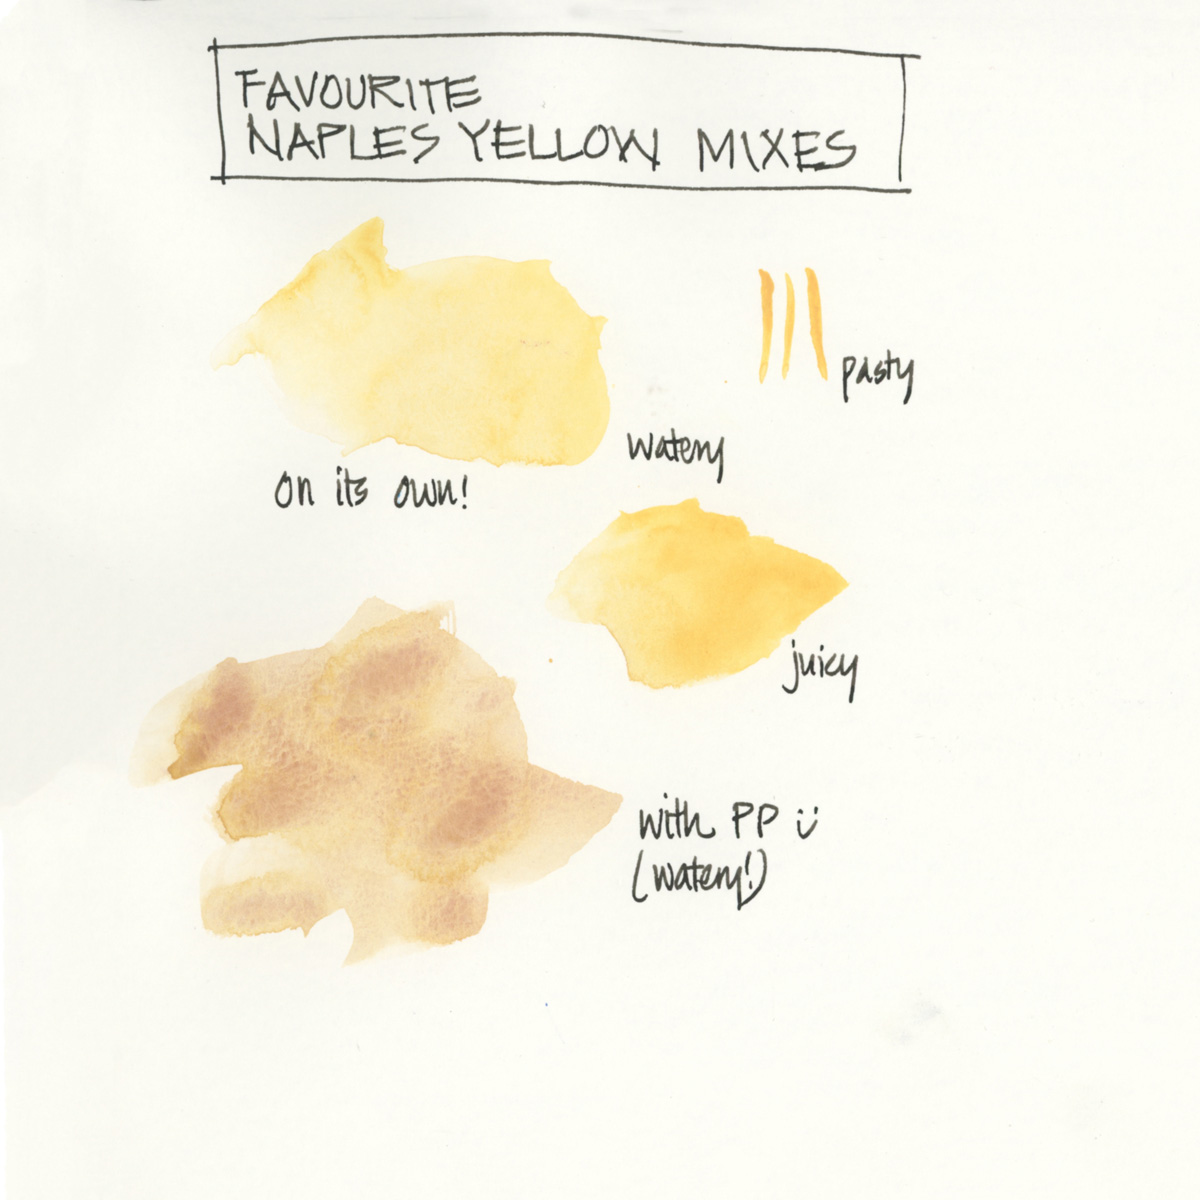 FAVOURITE
NAPLES YELLOW MIXES
pasty
watery
on its own!
juicy
with PP ü
(watery!)